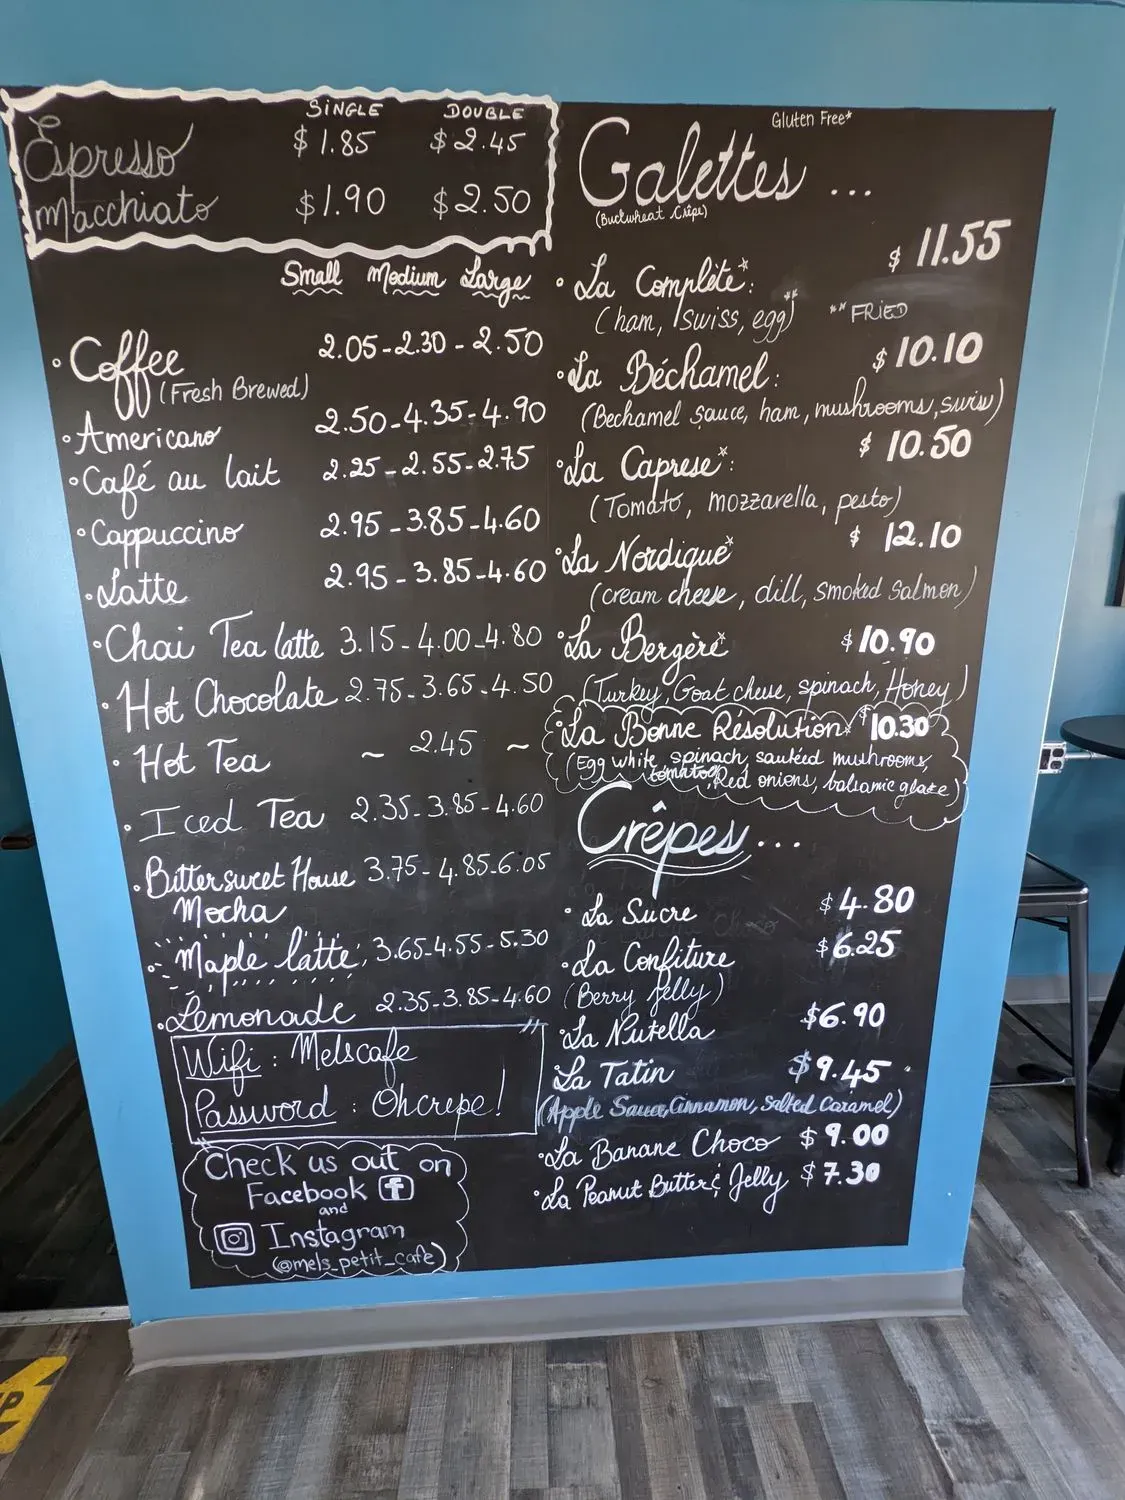 SINGLE DOUBLE
Espresso $1.85 $2.45
Macchiato $1.90 $2.50
Small Medium Large
• Coffee 2.05-2.30-2.50
(Fresh Brewed)
• Americano 2.50-4.35-4.90
• Café au lait 2.25-2.55-2.75
• Cappuccino 2.95-3.85-4.60
• Latte 2.95-3.85-4.60
• Chai Tea latte 3.15-4.00-4.80
• Hot Chocolate 2.75-3.65-4.50
• Hot Tea ~ 2.45 ~
• Iced Tea 2.35-3.85-4.60
• Bittersweet House 3.75-4.85-6.05
Mocha
• Maple latte 3.65-4.55-5.30
• Lemonade 2.35-3.85-4.60
Wifi : Melscafe
Password : Ohcrepe!
Check us out on
Facebook
and
Instagram
(@mels_petit_cafe)
Gluten Free*
Galettes ...
(Buckwheat Crêpe)
$ 11.55
• La Complète*:
(ham, swiss, egg)** ** FRIED
$ 10.10
• La Béchamel:
(Bechamel sauce, ham, mushrooms, swiss)
$ 10.50
• La Caprese*:
(Tomato, mozzarella, pesto)
$ 12.10
• La Nordique*
(cream cheese, dill, smoked salmon)
• La Bergère* $10.90
(Turkey, Goat cheese, spinach, Honey)
• La Bonne Résolution* $10.30
(Egg white, spinach, sautéed mushrooms,
tomatoes, Red onions, balsamic glaze)
Crêpes ...
• La Sucre $4.80
• La Confiture $6.25
(Berry Jelly)
• La Nutella $6.90
La Tatin $9.45
(Apple Sauce, Cinnamon, Salted Caramel)
• La Banane Choco $9.00
• La Peanut Butter & Jelly $7.30